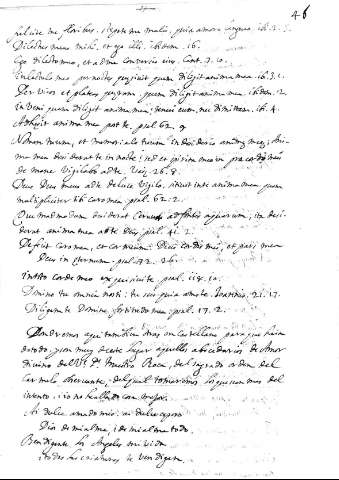 46
fulcite me floribus, stipate me malis, quia amore langueo. ib. 2. 5.
Dilectus meus mihi, et ego illi. ibidem. 16.
Ego dilecto meo, et ad me conversio eius. Cant. 7. 10.
In lectulo meo per noctes quesivi quem diligit anima mea. ib. 3. 1.
Per vicos et plateas queram, quem diligit anima mea. ibidem. 2.
Inveni quem diligit anima mea; tenui eum, nec dimittam. ib. 4.
Adhesit anima mea post te. psal. 62. 9
Nomen tuum, et memoriale tuum in desiderio anime mee; Ani
ma mea desideravit te in nocte; sed et spiritu meo in precordijs meis
de mane vigilabo ad te. 26. 8.
Deus Deus meus ad te de luce vigilo, sitivit in te anima mea quam
multipliciter tibi caro mea. psal. 62. 2.
Quemadmodum desiderat cervus ad fontes aquarum, ita desi
derat anima mea ad te Deus. psal. 41. 2.
Deficit caro mea, et cor meum: Deus cordis mei, et pars mea
Deus in eternum. psal. 72. 26.
In toto corde meo exquisivi te. psal. 118. 10.
Domine tu omnia nosti: tu scis quia amo te. Joannis. 21. 17.
Diligam te Domine, fortitudo mea. psal. 17. 2.
Pondremos aqui tambien en castellano para que
de todo, por muy deste lugar aquellos abecedarios de Amor
divino del P. Maestro Roca, del sagrado orden del
intento, i io no hallado con
Ai dulce amado mio: ai dulce esposo
Dios de mi alma, i de mi alma todo,
Bendigante los Angeles mi vida
i todas las criaturas te bendigan.